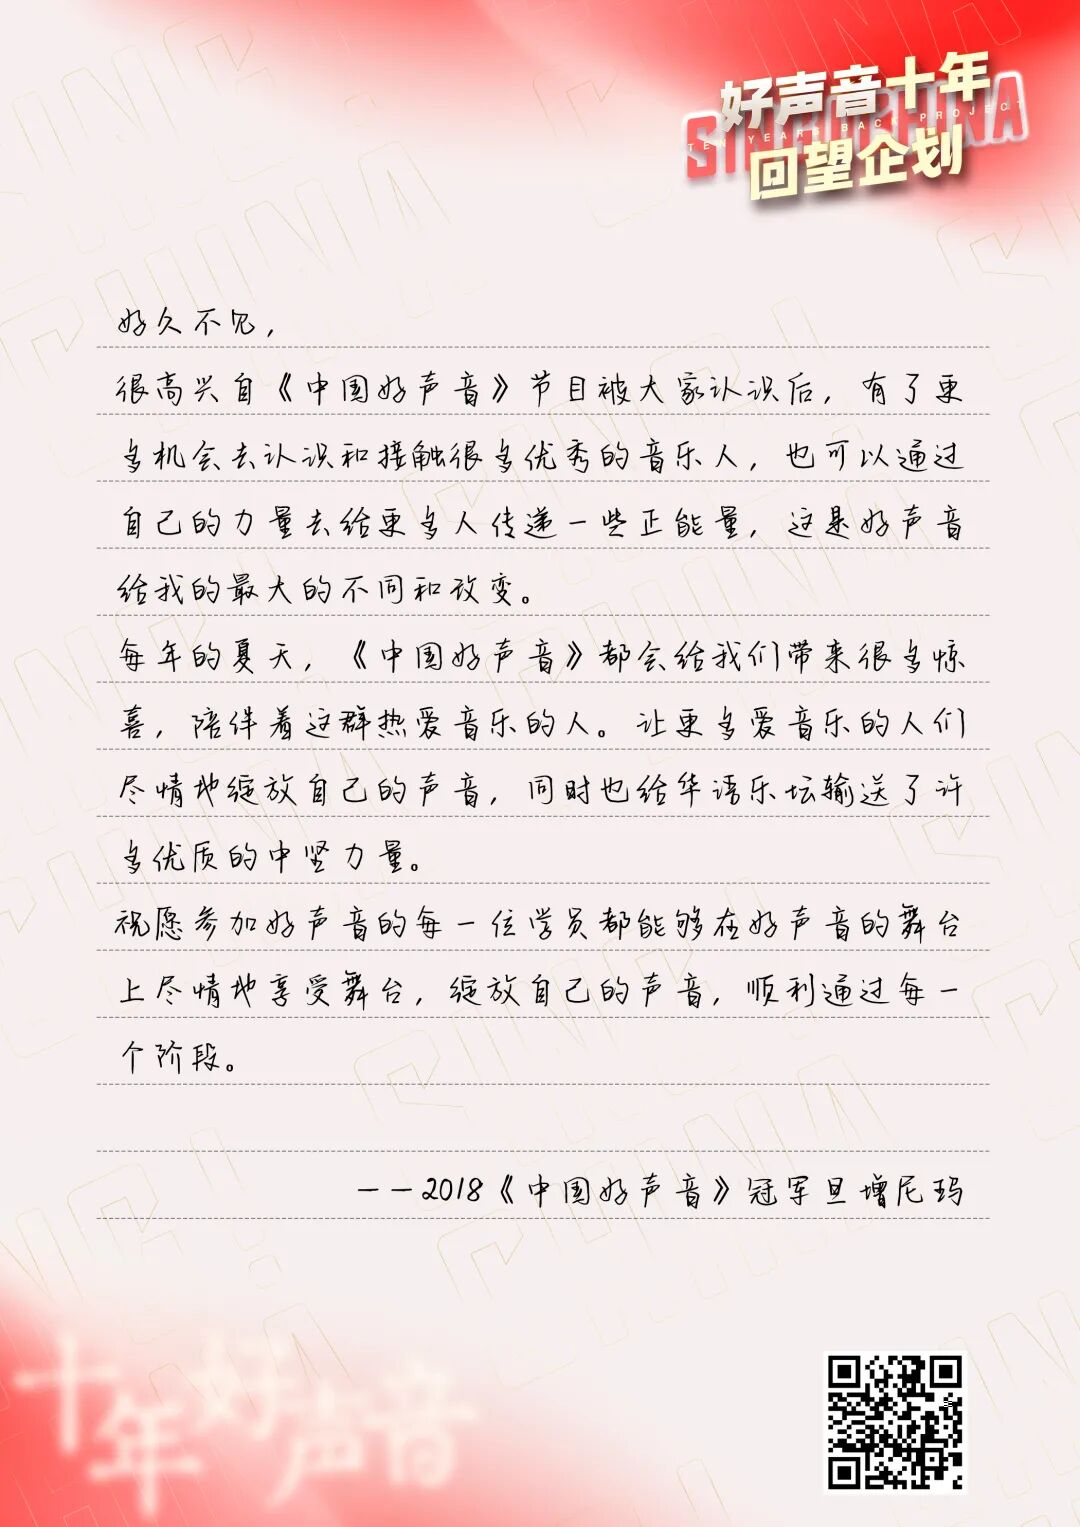 好声音十年
SING!CHINA
TEN YEARS BACK PROJECT
回望企划
好久不见，
很高兴自《中国好声音》节目被大家认识后，有了更
多机会去认识和接触很多优秀的音乐人，也可以通过
自己的力量去给更多人传递一些正能量，这是好声音
给我的最大的不同和改变。
每年的夏天，《中国好声音》都会给我们带来很多惊
喜，陪伴着这群热爱音乐的人。让更多爱音乐的人们
尽情地绽放自己的声音，同时也给华语乐坛输送了许
多优质的中坚力量。
祝愿参加好声音的每一位学员都能够在好声音的舞台
上尽情地享受舞台，绽放自己的声音，顺利通过每一
个阶段。
——2018《中国好声音》冠军旦增尼玛
十年好声音